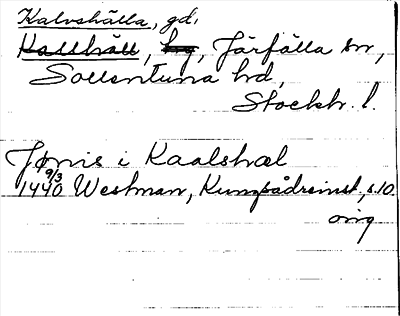 Kalvshälla, gd.
Kallhäll, by, Järfälla sn,
Sollentuna hd,
Stockh. l.
Jønis i Kaalshæl
1440 9/3 Westman, Kungsådreinst, s. 10
orig